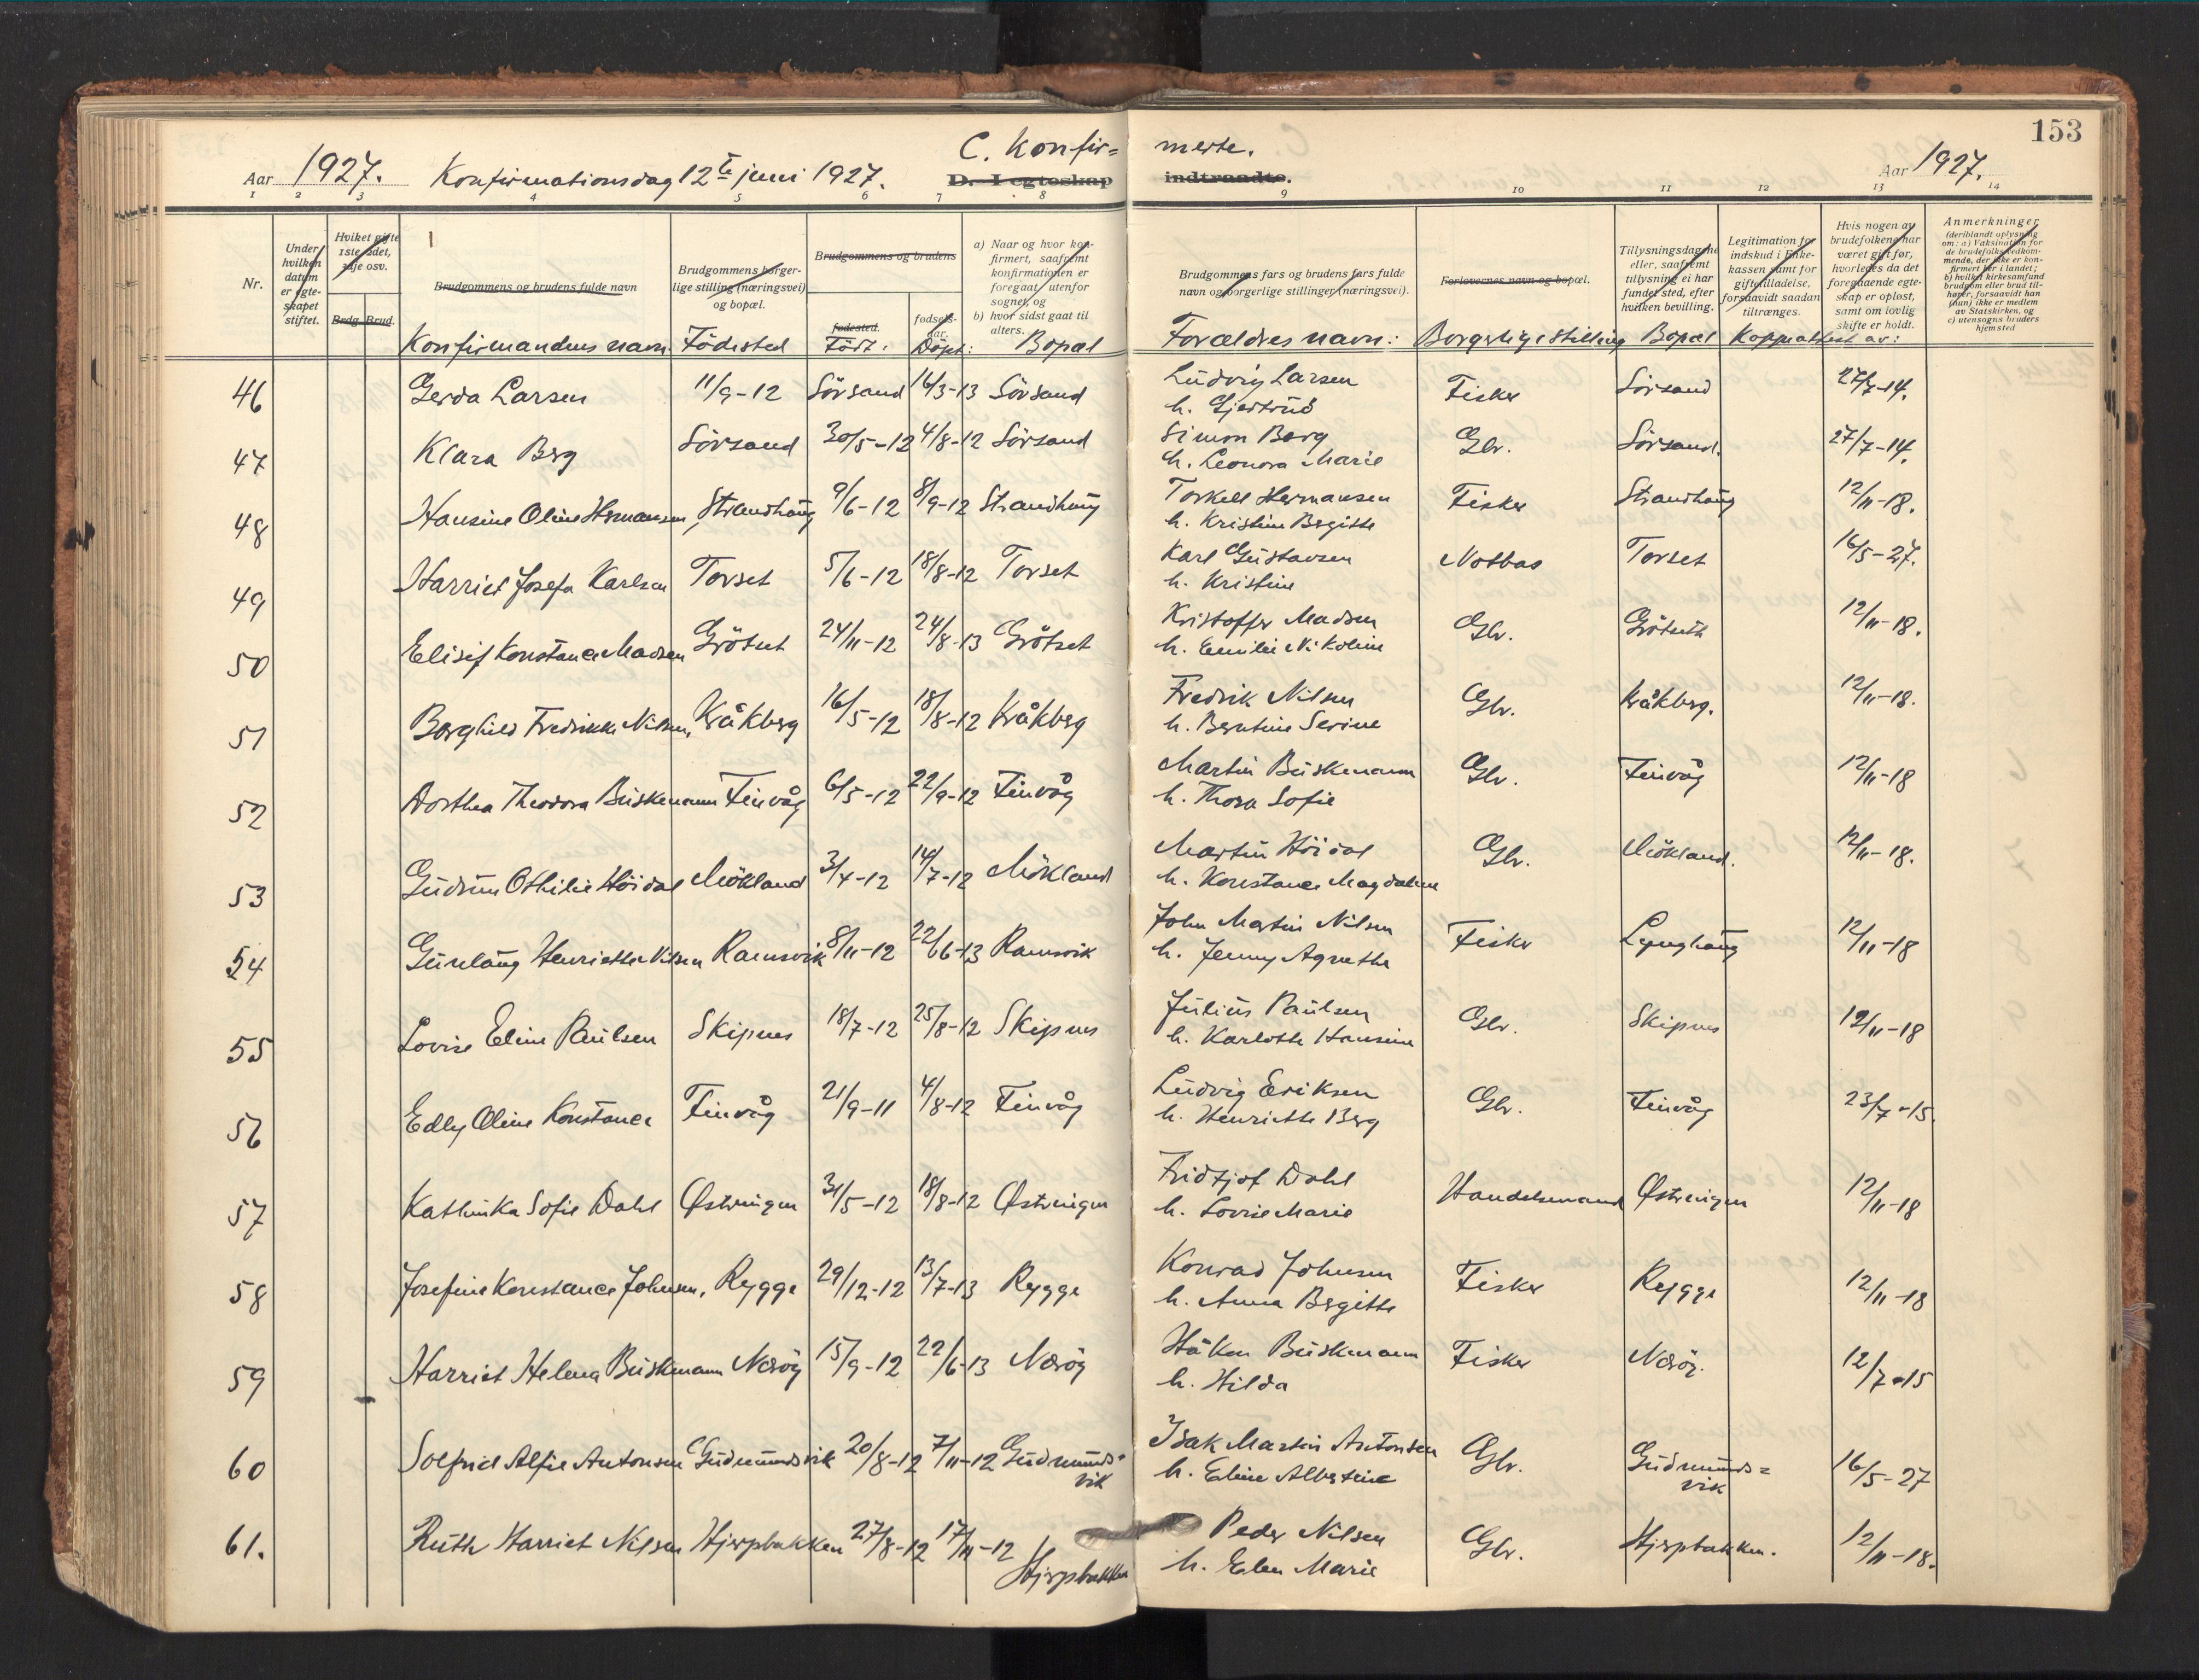 153
C. Konfir= merte.
Aar 1927. Konfirmationsdag 12te juni 1927. D. I egteskap indtraadte. Aar 1927.
1 2 3 4 5 6 7 8 9 10 11 12 13 14
Nr.
Under hvilken datum er egteskapet stiftet.
Hvilket gifte 1ste, 2det, 3dje osv.
Brdg. Brud.
Brudgommens og brudens fulde navn
Brudgommens borgerlige stilling (næringsvei) og bopæl.
Brudgommens og brudens
fødested. fødselsaar.
a) Naar og hvor konfirmert, saafremt konfirmationen er foregaat utenfor sognet, og
b) hvor sidst gaat til alters.
Brudgommens fars og brudens fars fulde navn og borgerlige stillinger (næringsvei).
Forlovernes navn og bopæl.
Tillysningsdagene eller, saafremt tillysning ei har fundet sted, efter hvilken bevilling.
Legitimation for indskud i Enkekassen samt for giftetilladelse, forsaavidt saadan tiltrænges.
Hvis nogen av brudefolkene har været gift før, hvorledes da det foregaaende egteskap er opløst, samt om lovlig skifte er holdt.
Anmerkninger (deriblandt oplysning om: a) Vaksination for de brudefolks vedkommende, der ikke er konfirmert her i landet; b) hvilket kirkesamfund brudgom eller brud tilhører, forsaavidt han (hun) ikke er medlem av Statskirken, og c) utensogns bruders hjemsted
Konfirmandens navn. Födested Födt: Döpt: Bopæl Forældres navn: Borgerlige stilling Bopæl Koppeattest av:
46 Gerda Larsen 11/9-12 Sörsand 16/3-13 Sörsand Ludvig Larsen Fisker Sörsand 27/7-14.
h. Gjertrud
47 Klara Berg Sörsand 30/5-12 4/8-12 Sörsand Simon Berg Gbr. Sörsand. 27/7-14.
h. Leonora Marie
48 Hansine Oline Hermansen, Strandhaug 9/6-12 8/9-12 Strandhaug Torkell Hermansen Fisker Strandhaug 12/11-18.
h. Kristine Bergitte
49 Harriet Josefa Karlsen Torset 5/6-12 18/8-12 Torset Karl Gustavsen Notbas Torset 16/5-27.
h. Kristine
50 Elisif Konstance Madsen Grötset 24/11-12 24/8-13 Grötset Kristoffer Madsen Gbr. Grötseth 12/11-18.
h. Emilie Nikoline
51 Borghild Fredrikke Nilsen, Kråkberg 16/5-12 18/8-12 Kråkberg Fredrik Nilsen Gbr. Kråkberg. 12/11-18.
h. Berntine Serine
52 Dorthea Theodora Buskmann Finvåg 6/5-12 22/9-12 Finvåg Martin Buskmann Gbr. Finvåg 12/11-18
h. Thora Sofie
53 Gudrun Othilie Höidal Mökland 3/4-12 14/7-12 Mökland Martin Höidal Gbr. Mökland. 12/11-18.
h. Konstance Magdalene
54 Gunlaug Henriette Nilsen Ramsvik 8/11-12 22/6-13 Ramsvik John Martin Nilsen Fisker Lynghaug 12/11-18
h. Jenny Agnethe
55 Lovise Eline Paulsen Skipnes 18/7-12 25/8-12 Skipnes Julius Paulsen Gbr. Skipnes 12/11-18
h. Karlotte Hansine
56 Edly Oline Konstance Finvåg 21/9-11 4/8-12 Finvåg Ludvig Eriksen Gbr. Finvåg 23/7-15.
h. Henriette Berg
57 Kathinka Sofie Dahl Østvingen 31/5-12 18/8-12 Østvingen Fridtjof Dahl Handelsmand Østvingen 12/11-18
h. Lovise Marie
58 Josefine Konstance Johnsen, Rygge 29/12-12 13/7-13 Rygge Konrad Johnsen Fisker Rygge 12/11-18
h. Anna Bergitte
59 Harriet Helena Buskmann Nærög 15/9-12 22/6-13 Nærög Håkon Buskmann Fisker Nærög. 12/7-15
h. Hilda
60 Solfrid Alfie Antonsen Gudmundsvik 20/8-12 7/11-12 Gudmunds- Isak Martin Antonsen Gbr. Gudmunds= 16/5-27
vik h. Eline Albertine vik
61. Ruth Harriet Nilsen Hjerpbakken 27/8-12 17/11-12 Peder Nilsen Gbr. Hjerpbakken. 12/11-18.
Hjerpbakken h. Elen Marie